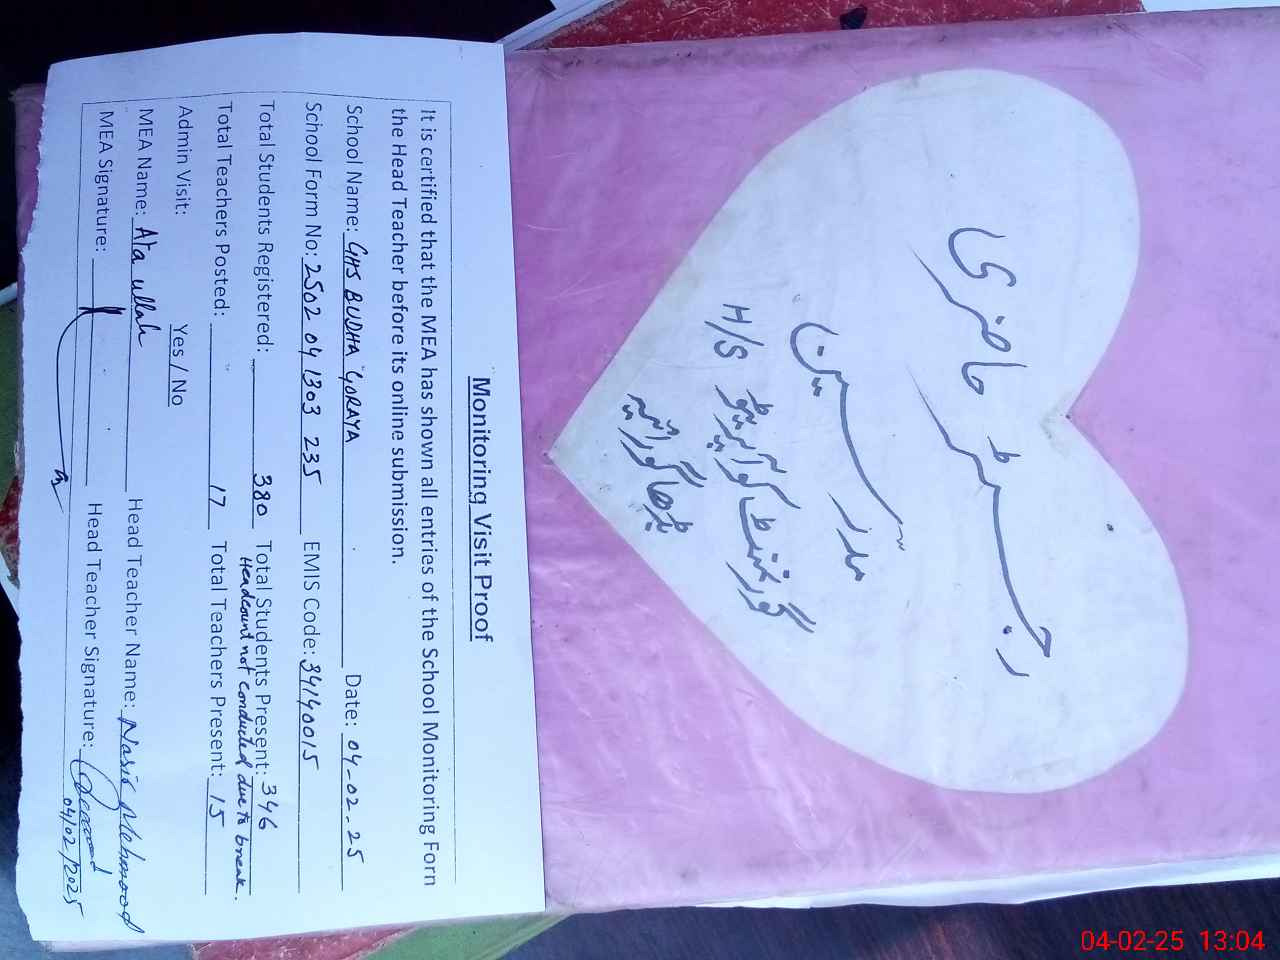 Monitoring Visit Proof
It is certified that the MEA has shown all entries of the School Monitoring Form
the Head Teacher before its online submission.
School Name: GHS BUDHA GORAYA Date: 04-02-25
School Form No: 2502 04 1303 235 EMIS Code: 34140015
Total Students Registered: 380 Total Students Present: 346
Headcount not conducted due to break.
Total Teachers Posted: 17 Total Teachers Present: 15
Admin Visit: Yes / No
MEA Name: Ata ullah Head Teacher Name: Nasir Mehmood
MEA Signature: Head Teacher Signature:
04/02/2025
رجسٹر حاضری
مدرسین
گورنمنٹ گورایہ بڈھا H/S
بڈھا گورائیہ
04-02-25 13:04